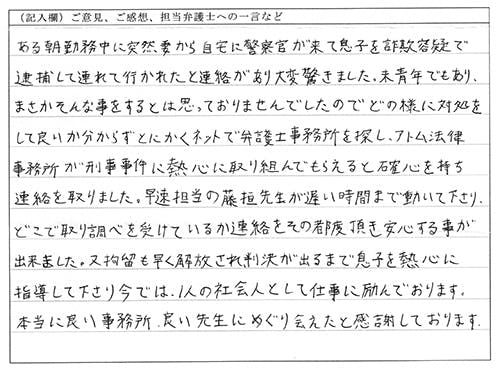 (記入欄)ご意見、ご感想、担当弁護士への一言など
ある朝勤務中に突然妻から自宅に警察官が来て息子を詐欺容疑で
逮捕して連れて行かれたと連絡があり大変驚きました。未青年でもあり、
まさかそんな事をするとは思っておりませんでしたのでどの様に対処を
して良いか分からずとにかくネットで弁護士事務所を探し、アトム法律
事務所が刑事事件に熱心に取り組んでもらえると確心を持ち
連絡を取りました。早速担当の藤垣先生が遅い時間まで動いて下さり、
どこで取り調べを受けているか連絡をその都度頂き安心する事が
出来ました。又拘留も早く解放され判決が出るまで息子を熱心に
指導して下さり今では、1人の社会人として仕事に励んでおります。
本当に良い事務所、良い先生にめぐり会えたと感謝しております。